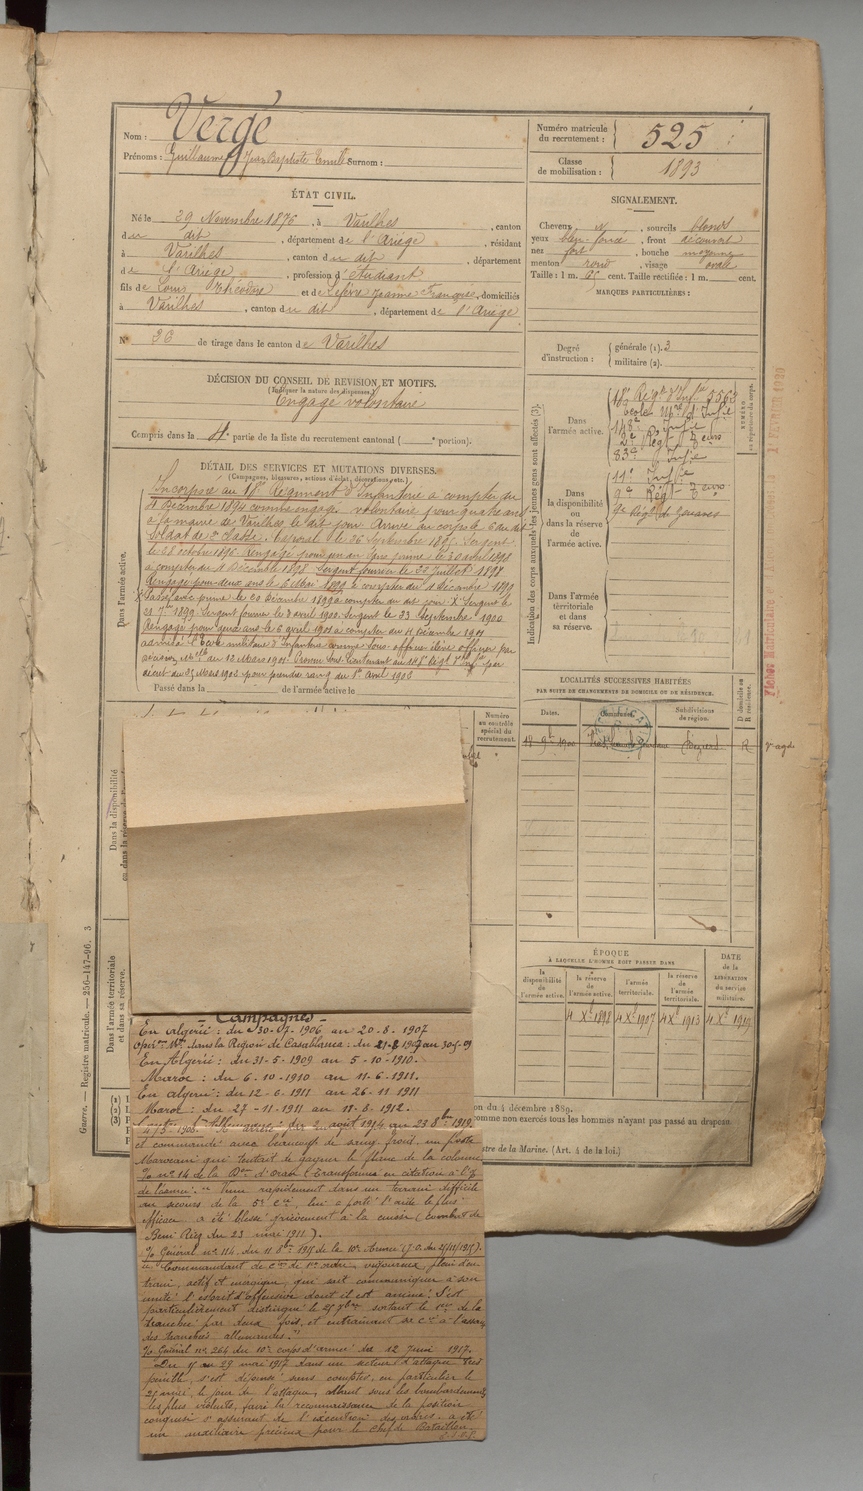 Nom : Vergé
Prénoms : Guillaume Jean Baptiste Emile Surnom :
Numéro matricule du recrutement : 525
Classe de mobilisation : 1893
ÉTAT CIVIL.
Né le 29 Novembre 1876, à Varilhes, canton
du dit, département de l'Ariège, résidant
à Varilhes, canton du dit, département
de l'Ariège, profession d'étudiant
fils de Théodore et de Jeanne Françoise, domiciliés
à Varilhes, canton du dit, département de l'Ariège
N° 36 de tirage dans le canton de Varilhes
SIGNALEMENT.
Cheveux, sourcils blonds
yeux bleu foncé, front découvert
nez fort, bouche moyenne
menton rond, visage ovale
Taille : 1 m. cent. Taille rectifiée : 1 m. cent.
MARQUES PARTICULIÈRES :
Degré d'instruction : générale (1). 3
militaire (2).
DÉCISION DU CONSEIL DE REVISION ET MOTIFS.
(Indiquer la nature des dispenses.)
Engagé volontaire
Compris dans la 4e partie de la liste du recrutement cantonal ( e portion).
DÉTAIL DES SERVICES ET MUTATIONS DIVERSES.
(Campagnes, blessures, actions d'éclat, décorations, etc.)
Dans l'armée active.
Incorporé au 18e Régiment d'Infanterie à compter du
4 Décembre 1894 comme engagé volontaire pour quatre ans
à la mairie de Varilhes, le dit jour. Arrivé au corps le 6 du dit
Soldat de 2e classe. Caporal le 26 Septembre 1895. Sergent
le 28 octobre 1896. Rengagé pour un an sans prime le 30 avril 1898
à compter du 4 Décembre 1898. Sergent fourrier le 22 Juillet 1898
Rengagé pour deux ans le 6 Mai 1899 à compter du 4 Décembre 1899
avec prime le 20 Décembre 1899 à compter du dit jour. Sergent le
21 7bre 1899. Sergent fourrier le 8 avril 1900. Sergent le 23 Septembre 1900
Rengagé pour deux ans le 6 avril 1901 à compter du 4 Décembre 1901
admis à l'Ecole militaire d'Infanterie comme sous-officier élève officier par
décision du 12 Mars 1901. Promu Sous-Lieutenant au 148e Régt d'Infie par
décret du 25 Mars 1902 pour prendre rang du 1er Avril 1902
Passé dans la de l'armée active le
Indication des corps auxquels les jeunes gens sont affectés (3).
NUMÉRO au répertoire du corps.
Dans l'armée active.
18e Régt d'Infie 5562
Ecole Mre d'Infie
148e Infie
2e Régt Z
83e Infie
Dans la disponibilité ou dans la réserve de l'armée active.
11e Infie
9e Régt Z
9e Régt de Zouaves
Dans l'armée territoriale et dans sa réserve.
LOCALITÉS SUCCESSIVES HABITÉES
PAR SUITE DE CHANGEMENTS DE DOMICILE OU DE RÉSIDENCE.
Dates. Communes. Subdivisions de région. D domicile ou R résidence.
Béziers R
Numéro au contrôle spécial du recrutement.
Dans la disponibilité
Dans l'armée territoriale et dans sa réserve.
ÉPOQUE
À LAQUELLE L'HOMME DOIT PASSER DANS
la disponibilité de l'armée active.
la réserve de l'armée active.
l'armée territoriale.
la réserve de l'armée territoriale.
DATE de la LIBÉRATION du service militaire.
4 Xe 1898
4 Xe 1907
4 Xe 1913
4 Xe 1919
Guerre. — Registre matricule. — 256-147-96. 3
on du 4 décembre 1889.
comme non exercés tous les hommes n'ayant pas passé au drapeau
stre de la Marine. (Art. 4 de la loi.)
- Campagnes -
En Algérie : du 30-07-1906 au 20-8-1907
opérons Mres dans la Région de Casablanca : du 21-8-1907 au 30-5-09
En Algérie : du 31-5-1909 au 5-10-1910.
Maroc : du 6-10-1910 au 11-6-1911.
En Algérie : du 12-6-1911 au 26-11-1911
Maroc : du 27-11-1911 au 18-8-1912.
Allemagne : du 2 août 1914 au 23 8bre 1919.
et commandé avec beaucoup de sang froid un poste
Marocain qui tentait de gagner le flanc de la colonne
% n° 14 de la Don d'Oran (Transformée en citation à l'%
de l'armée. "Venu rapidement dans un terrain difficile
au secours de la 5e Cie, lui a porté l'aide le plus
efficace a été blessé grièvement à la cuisse (combat de
Beni Riez du 23 mai 1911).
% Général n° 114, du 11 8bre 1915 de la 10e Armée (J.O. du 25/11/1915).
"Commandant de Cie de 1er ordre, vigoureux, plein d'en
train, actif et énergique, qui sait communiquer à son
unité l'esprit d'offensive dont il est animé. S'est
particulièrement distingué le 25 7bre sortant le 1er de la
tranchée par deux fois et entraînant sa Cie à l'assaut
des tranchées allemandes."
% Général n° 264 du 10e corps d'armée du 12 Juin 1917.
"Du 15 au 29 mai 1917 dans un secteur d'attaque très
pénible, s'est dépensé sans compter, en particulier le
25 mai, le jour de l'attaque, allant sous les bombardements
les plus violents, faire la reconnaissance de la position
conquise s'assurant de l'exécution des ordres. a été
un auxiliaire précieux pour le Chef de Bataillon